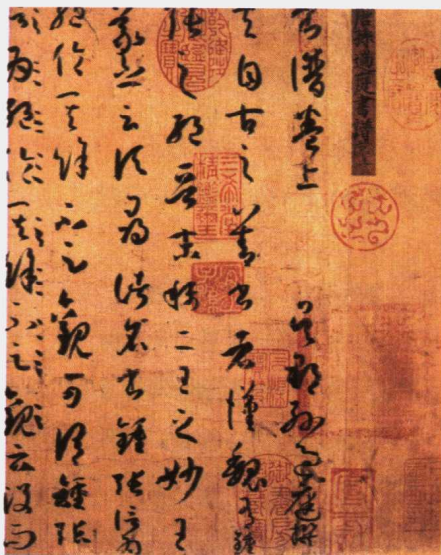 孫過庭書譜
書譜卷上 吳郡孫過庭撰
夫自古之善書者漢魏有鍾
張之絕晉末稱二王之妙王
羲之云頃尋諸名書鍾張信為
絕倫其餘不足觀可謂鍾張
云沒而
三希堂精鑑璽
宜子孫